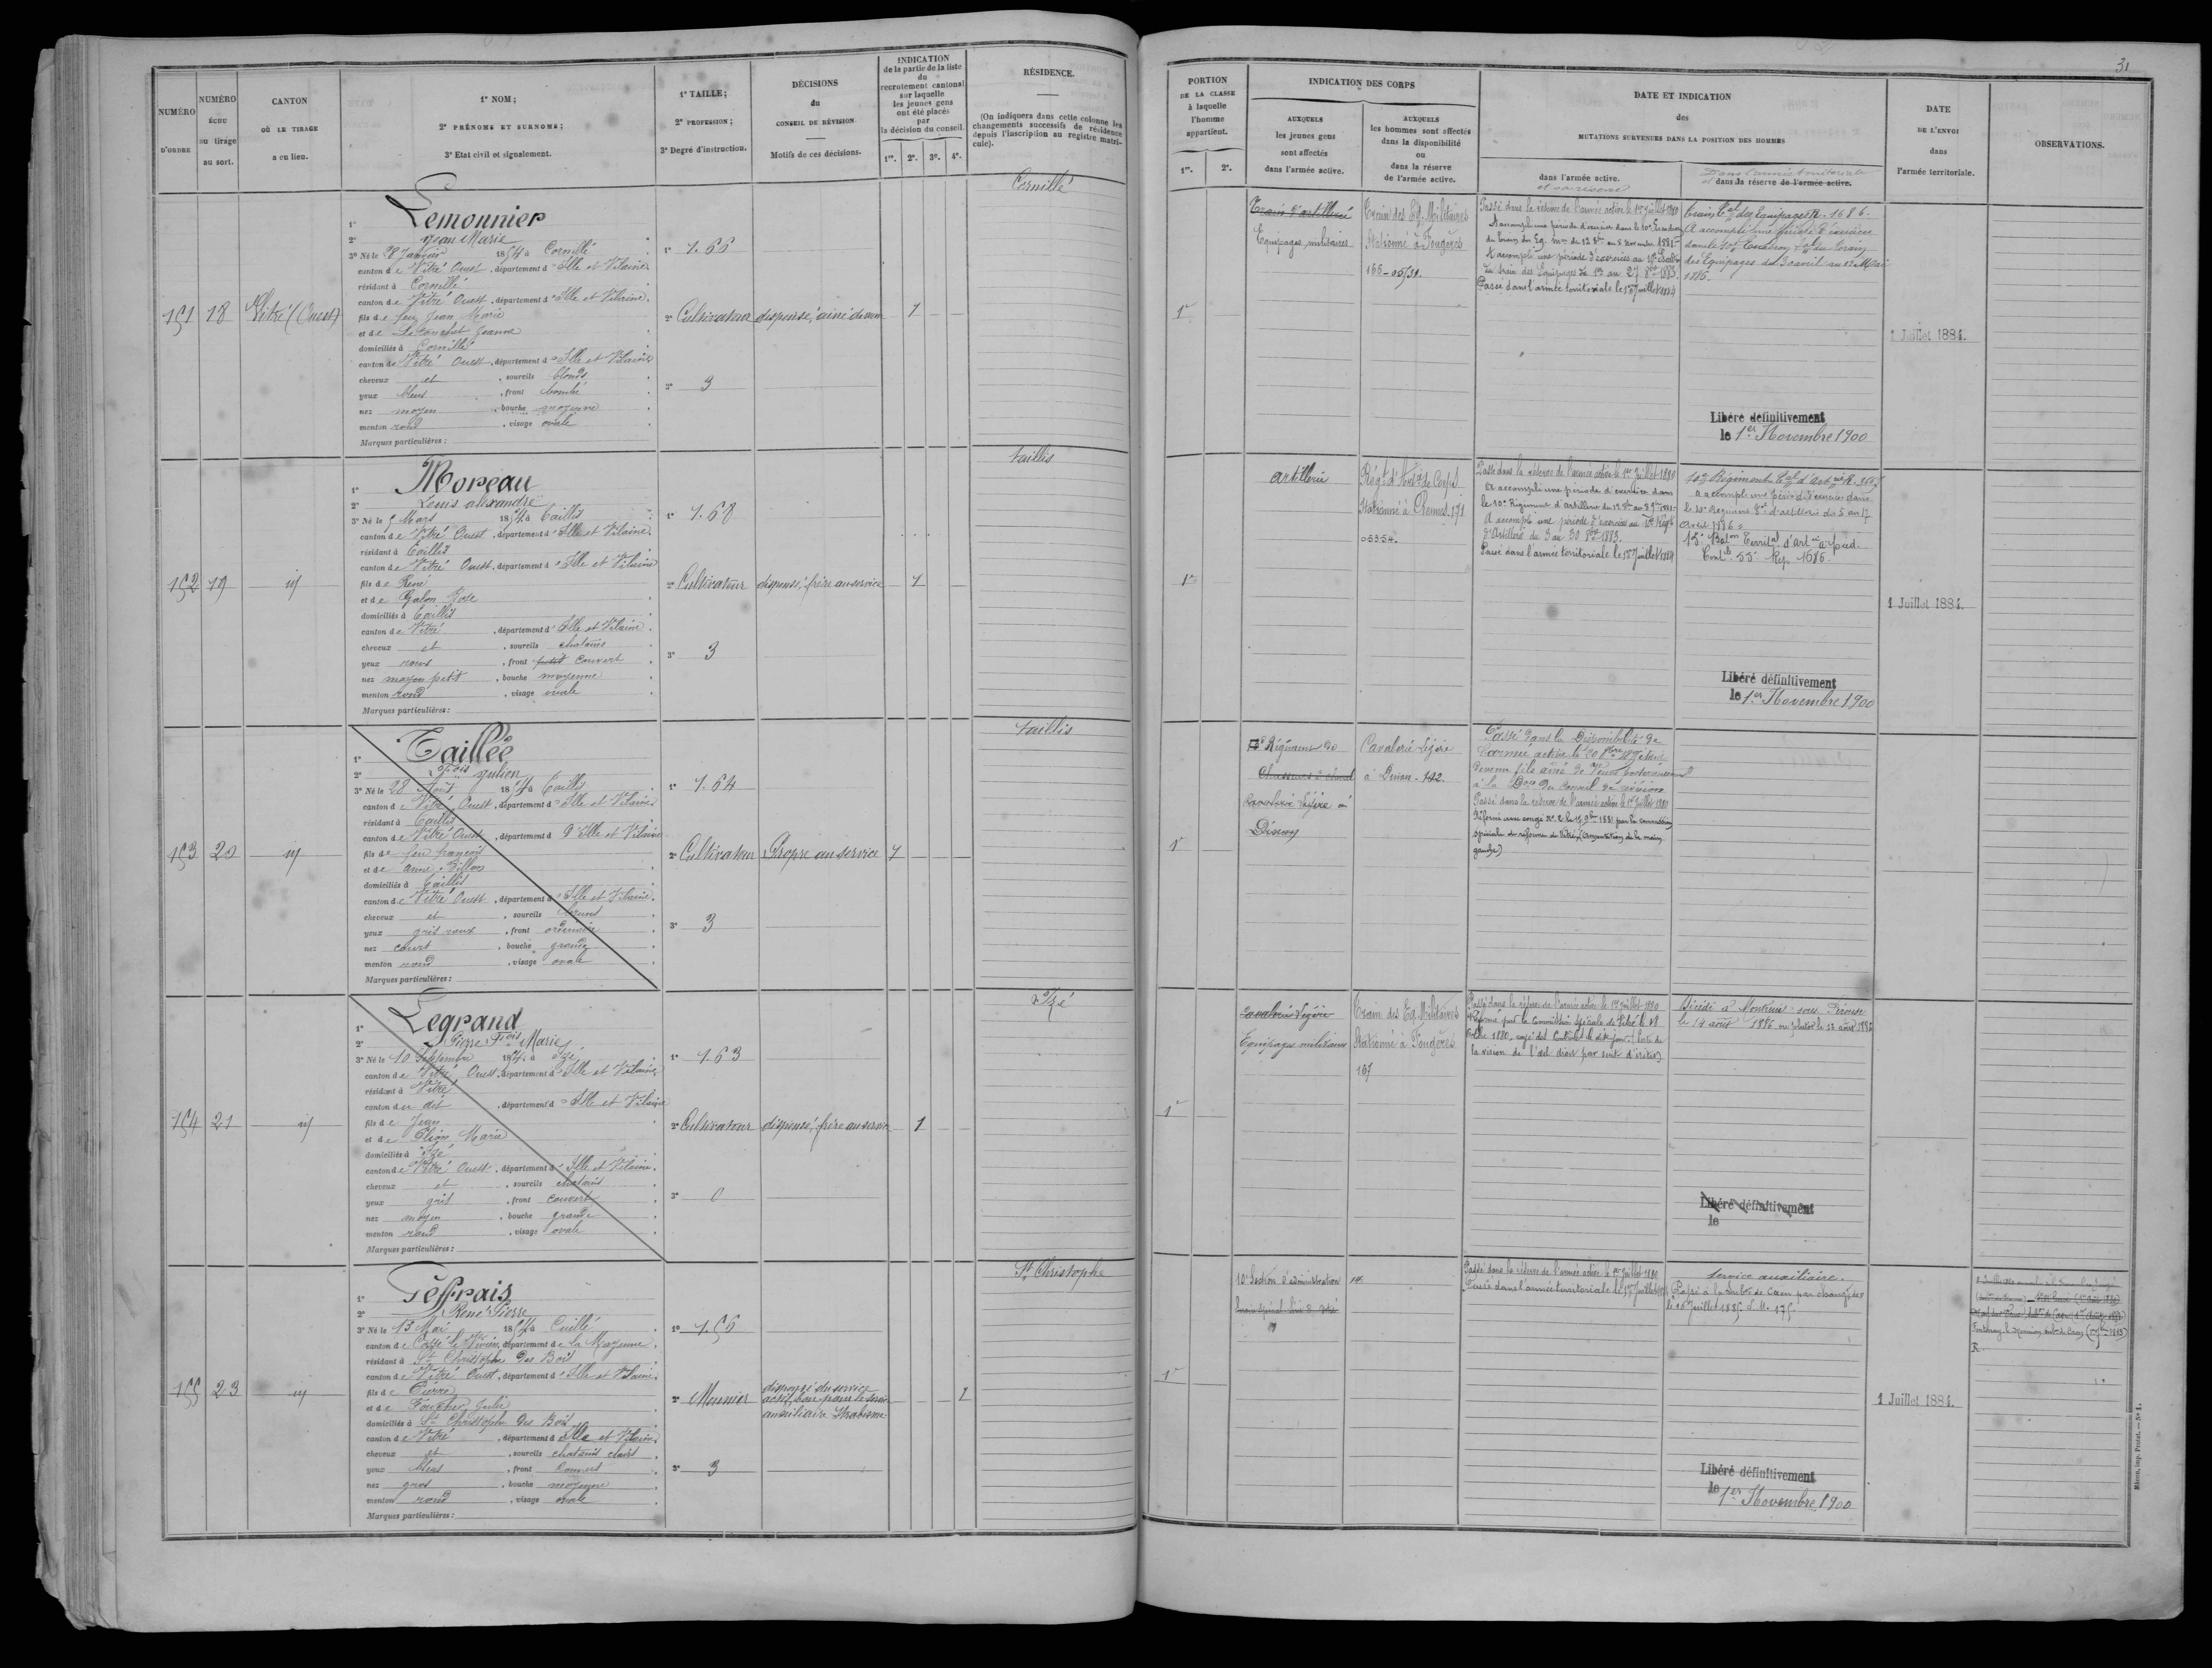 31
NUMÉRO D'ORDRE
NUMÉRO ÉCHU au tirage au sort.
CANTON OÙ LE TIRAGE a eu lieu.
1° NOM;
2° PRÉNOMS ET SURNOMS;
3° Etat civil et signalement.
1° TAILLE;
2° PROFESSION;
3° Degré d'instruction.
DÉCISIONS du CONSEIL DE RÉVISION
Motifs de ces décisions.
INDICATION de la partie de la liste du recrutement cantonal sur laquelle les jeunes gens ont été placés par la décision du conseil.
1re. 2e. 3e. 4e.
RÉSIDENCE.
(On indiquera dans cette colonne les changements successifs de résidence depuis l'inscription au registre matricule).
PORTION DE LA CLASSE à laquelle l'homme appartient.
1re. 2e.
INDICATION DES CORPS
AUXQUELS les jeunes gens sont affectés dans l'armée active.
AUXQUELS les hommes sont affectés dans la disponibilité ou dans la réserve de l'armée active.
DATE ET INDICATION des MUTATIONS SURVENUES DANS LA POSITION DES HOMMES
dans l'armée active.
et sa réserve
Dans l'armée territoriale
et dans sa réserve de l'armée active.
DATE DE L'ENVOI dans l'armée territoriale.
OBSERVATIONS.
151 18 Vitré (Ouest)
1° Lemonnier
2° Jean Marie
3° Né le 28 Janvier 1854 à Cornillé
canton de Vitré Ouest, département d'Ille et Vilaine
résidant à Cornillé
canton de Vitré Ouest, département d'Ille et Vilaine
fils de feu Jean Marie
et de Jeanne
domiciliés à Cornillé
canton de Vitré Ouest, département d'Ille et Vilaine
cheveux et, sourcils blonds
yeux bleus, front bombé
nez moyen, bouche moyenne
menton rond, visage ovale
Marques particulières:
1° 1.66
2° Cultivateur
3° 3
dispensé, ainé de
1
Cornillé
1re
Train d'artillerie
Equipages militaires
Train des Eq. Militaires
Stationné à Fougères
Passé dans la réserve de l'armée active le 1er Juillet 1880
A accompli une période d'exercices dans le 10e Escadron
du train des Eq. mres du 12 8bre au 8 novembre 1881.
A accompli une période d'exercices au 10e Escadron
du train des Equipages du 1er au 27 8bre 1883
Passé dans l'armée territoriale le 1er Juillet 1884
Train tal des Equipages R. 1686.
A accompli une période d'exercices
dans le 10e Escadron tal du train
des Equipages du 30 avril au 12 Mai
1886.
1 Juillet 1884.
Libéré définitivement
le 1er Novembre 1900
152 19 id
1° Moreau
2° Louis Alexandre
3° Né le 5 Mars 1854 à Taillis
canton de Vitré Ouest, département d'Ille et Vilaine
résidant à Taillis
canton de Vitré Ouest, département d'Ille et Vilaine
fils de René
et de Galon Rose
domiciliés à Taillis
canton de Vitré, département d'Ille et Vilaine
cheveux et, sourcils chatains
yeux roux, front petit couvert
nez moyen petit, bouche moyenne
menton rond, visage ovale
Marques particulières:
1° 1.68
2° Cultivateur
3° 3
dispensé, frère au service
1
Taillis
1re
Artillerie
Régt d'Artie de Corps
Stationné à Rennes. 171
Passé dans la réserve de l'armée active le 1er Juillet 1880
A accompli une période d'exercices dans
le 10e Régiment d'artillerie du 12 8bre au 8 9bre 1881.
A accompli une période d'exercices au 10e Régt
d'Artillerie du 3 au 30 8bre 1883.
Passé dans l'armée territoriale le 1er Juillet 1884
10e Régiment tal d'artie R.
A accompli une période d'exercices dans
le 10e Régiment tal d'artillerie du 5 au 17
Avril 1886.
15e Baton Territal d'artie à pied.
Contle 55 Rep. 1686.
1 Juillet 1884.
Libéré définitivement
le 1er Novembre 1900
153 20 id
1° Taillée
2° Fçois Julien
3° Né le 28 Août 1854 à Taillis
canton de Vitré Ouest, département d'Ille et Vilaine
résidant à Taillis
canton de Vitré Ouest, département d'Ille et Vilaine
fils de feu françois
et de anne
domiciliés à Taillis
canton de Vitré Ouest, département d'Ille et Vilaine
cheveux et, sourcils bruns
yeux gris roux, front ordinaire
nez court, bouche grande
menton rond, visage ovale
Marques particulières:
1° 1.64
2° Cultivateur
3° 3
Propre au service
1
Taillis
1re
Régiment de
Chasseurs à cheval
Cavalerie Légère à
Dinan
Cavalerie Légère
à Dinan - 142.
Passé dans la Disponibilité de
l'armée active le 20 étant
devenu fils aîné de veuve postérieurement
à la Don du Conseil de révision
Passé dans la réserve de l'armée active le 1er Juillet 1880
Réformé avec congé No 2 le 15 9bre 1881 par la commission
spéciale de réforme de Vitré (Amputation de la main
gauche)
154 21 id
1° Legrand
2° Pierre Fçois Marie
3° Né le 10 Septembre 1854 à Izé
canton de Vitré Ouest, département d'Ille et Vilaine
résidant à Vitré
canton du dit, département d'Ille et Vilaine
fils de Jean
et de Marie
domiciliés à Izé
canton de Vitré Ouest, département d'Ille et Vilaine
cheveux et, sourcils chatains
yeux gris, front couvert
nez moyen, bouche grande
menton rond, visage ovale
Marques particulières:
1° 1.63
2° Cultivateur
3° 0
dispensé, frère au service
1
Izé
1re
Cavalerie Légère
Equipages militaires
Train des Eq. Militaires
Stationné à Fougères
167
Passé dans la réserve de l'armée active le 1er Juillet 1880
Réformé par la Commission Spéciale de Vitré le 18
1880, rayé des Contrôles le dit jour. (Perte de
la vision de l'œil droit par suite d'iritis)
Décédé à Montreuil sous Pérouse
le 14 août 1886 ou plutôt le 13 août 1886
Libéré définitivement
le
155 23 id
1° Geffrais
2° René Pierre
3° Né le 13 Mai 1854 à Cuillé
canton de Cossé le Vivien, département de la Mayenne
résidant à St Christophe des Bois
canton de Vitré Ouest, département d'Ille et Vilaine
fils de Pierre
et de Foucher Julie
domiciliés à St Christophe des Bois
canton de Vitré, département d'Ille et Vilaine
cheveux et, sourcils chatains clairs
yeux bleus, front couvert
nez gros, bouche moyenne
menton rond, visage ovale
Marques particulières:
1° 1.56
2° Meunier
3° 3
dispensé du service
actif, bon pour le service
auxiliaire Strabisme
1
St Christophe
1re
10e Section d'administration
Passé dans la réserve de l'armée active le 1er Juillet 1880
Passé dans l'armée territoriale le 1er Juillet 1884
Service auxiliaire.
Passé à la Subdon de Caen par changt de
le 16 Juillet 1885
1 Juillet 1884.
Libéré définitivement
le 1er Novembre 1900
Mâcon, imp. Protat. — No 1.